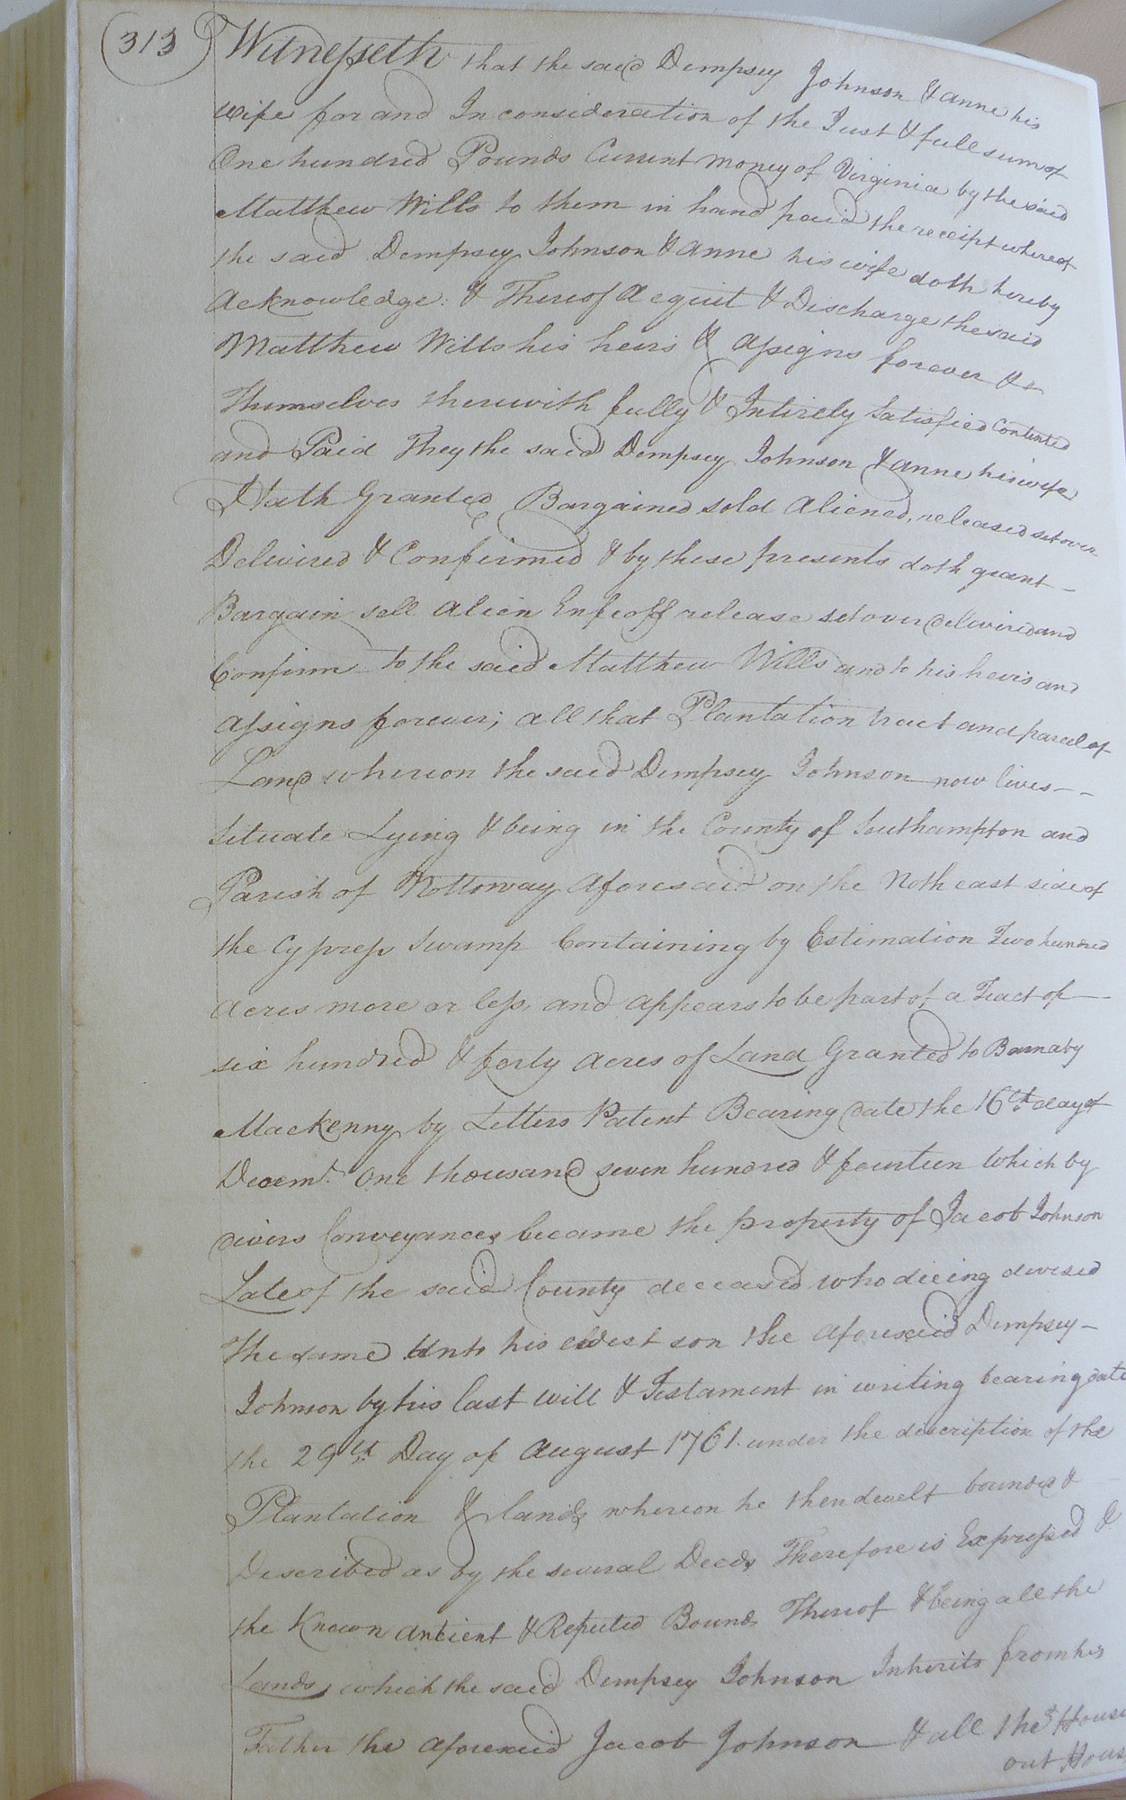 313
Witnesseth that the said Dempsey Johnson & anne his
wife for and In consideration of the Just & full sum of
One hundred Pounds Current money of Virginia by the said
Matthew Wills to them in hand paid the receipt whereof
the said Dempsey Johnson & anne his wife doth hereby
Acknowledge: & Thereof Acquit & Discharge the said
Matthew Wills his heirs & assigns forever &
Themselves therewith fully & Intirely Satisfied Contented
and Paid They the said Dempsey Johnson & anne his wife
Hath Granted Bargained sold Aliened, released set over
Delivired & Confirmed & by these presents doth grant
Bargain sell alien Enfeoff release set over delivired and
Confirm to the said Matthew Wills and to his heirs and
assigns forever; all that Plantation tract and parcel of
Land whereon the said Dempsey Johnson now lives--
Situate Lying & being in the County of Southampton and
Parish of Nottoway aforesaid on the Noth east side of
the Cypress Swamp Containing by Estimation Two hundred
acres more or less, and appears to be part of a Tract of
six hundred & forty acres of Land Granted to Barnaby
Mackenny by Letters Patent Bearing date the 16th day of
Decemr. One thousand seven hundred & fourteen Which by
divers Conveyances became the property of Jacob Johnson
Late of the said County deceased who dieing devised
The same Unto his eldest son the aforesaid Dempsey-
Johnson by his last will & Testament in writing bearing date
the 29th Day of August 1761. under the discription of the
Plantation & lands whereon he then dwelt bounded &
Described as by the several Deeds Therefore is Expressed &
the Known antient & Reputed Bounds Thereof & being all the
Lands, which the said Dempsey Johnson Inherits from his
Father the aforesaid Jacob Johnson & all the House
out Hous